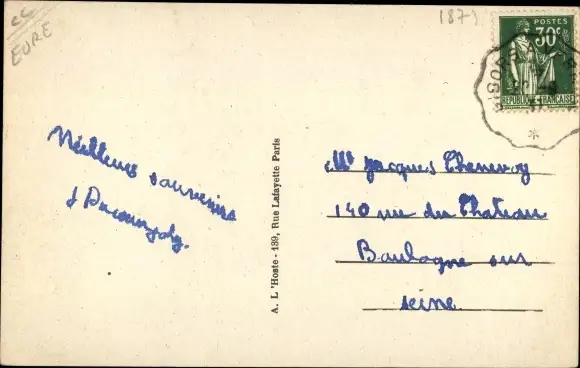 EURE
187
POSTES
30c
REPUBLIQUE FRANCAISE
GISORS A
Meilleurs souvenirs
A. L'Hoste - 139, Rue Lafayette Paris
Mr Jacques Thenevoy
140 rue du Chateau
Boulogne sur
seine